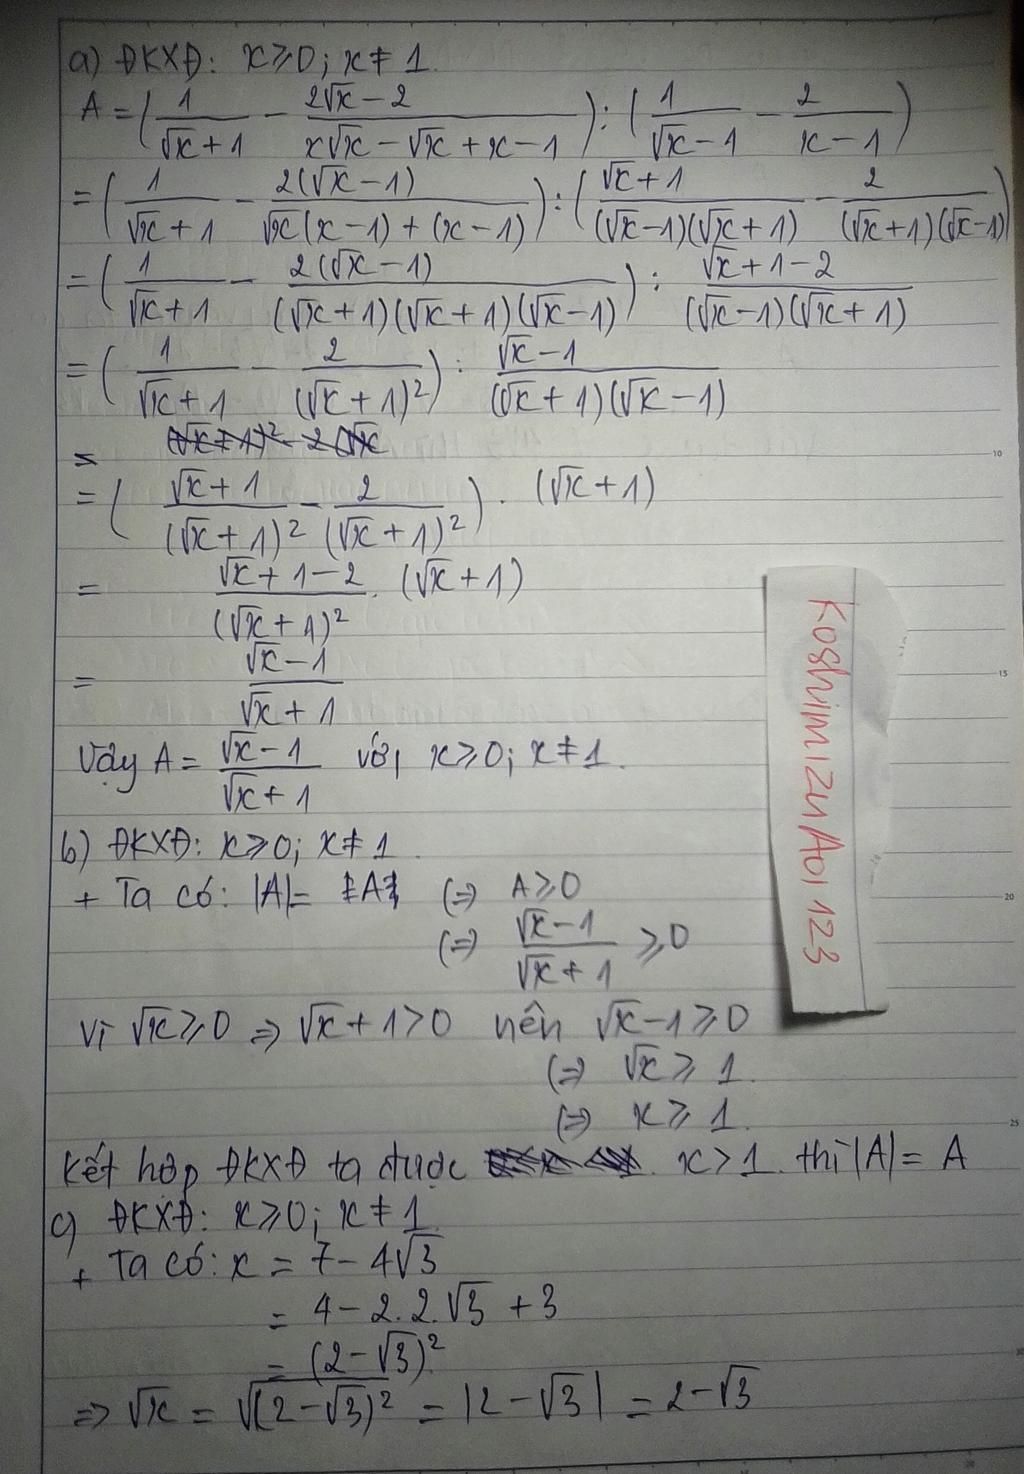 a) ĐKXĐ: x ≥ 0; x ≠ 1.
A = (1/(√x + 1) - (2√x - 2)/(x√x - √x + x - 1)) : (1/(√x - 1) - 2/(x - 1))
= (1/(√x + 1) - 2(√x - 1)/(√x(x - 1) + (x - 1))) : ((√x + 1)/((√x - 1)(√x + 1)) - 2/((√x + 1)(√x - 1)))
= (1/(√x + 1) - 2(√x - 1)/((√x + 1)(√x + 1)(√x - 1))) : (√x + 1 - 2)/((√x - 1)(√x + 1))
= (1/(√x + 1) - 2/(√x + 1)²) : (√x - 1)/((√x + 1)(√x - 1))
=
= ((√x + 1)/(√x + 1)² - 2/(√x + 1)²) . (√x + 1)
= (√x + 1 - 2)/(√x + 1)² . (√x + 1)
= (√x - 1)/(√x + 1)
Vậy A = (√x - 1)/(√x + 1) với x ≥ 0; x ≠ 1.
b) ĐKXĐ: x ≥ 0; x ≠ 1.
+ Ta có: |A| = A ⇔ A ≥ 0
⇔ (√x - 1)/(√x + 1) ≥ 0
Vì √x ≥ 0 ⇒ √x + 1 > 0 nên √x - 1 ≥ 0
⇔ √x ≥ 1.
⇔ x ≥ 1.
Kết hợp ĐKXĐ ta được x > 1 thì |A| = A
c) ĐKXĐ: x ≥ 0; x ≠ 1.
+ Ta có: x = 7 - 4√3
= 4 - 2.2.√3 + 3
= (2 - √3)²
⇒ √x = √(2 - √3)² = |2 - √3| = 2 - √3
Koshimizu Aoi 123